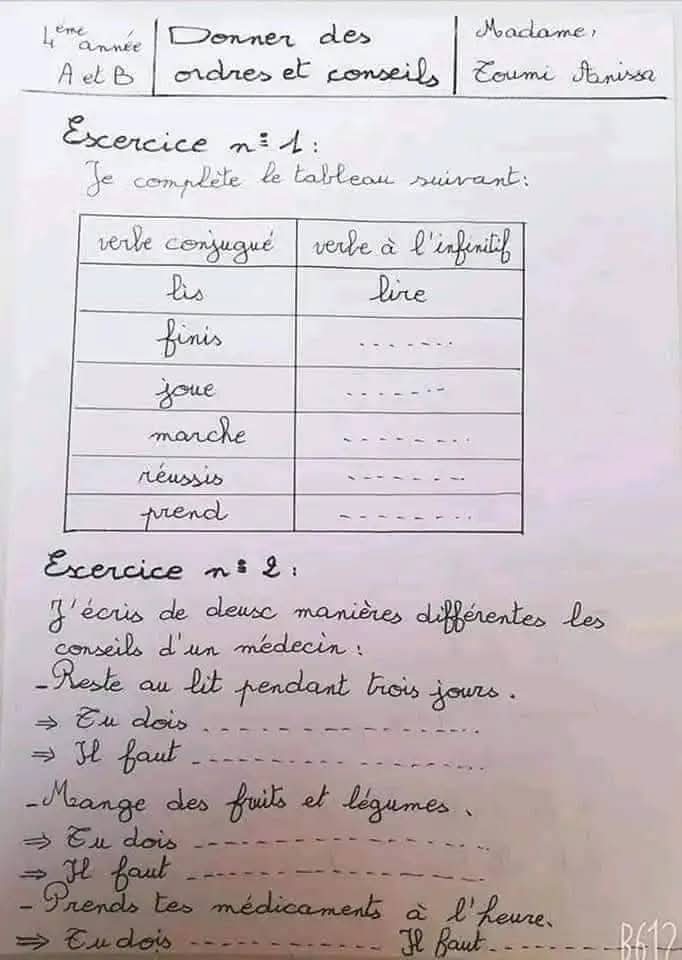 4ème année
A et B
Donner des
ordres et conseils
Madame,
Toumi Anissa
Excercice n° 1 :
Je complète le tableau suivant :
verbe conjugué verbe à l'infinitif
lis lire
finis .......
joue .......
marche .......
réussis .......
prend .......
Excercice n° 2 :
J'écris de deux manières différentes les
conseils d'un médecin :
- Reste au lit pendant trois jours.
⇒ Tu dois .......
⇒ Il faut .......
- Mange des fruits et légumes.
⇒ Tu dois .......
⇒ Il faut .......
- Prends tes médicaments à l'heure.
⇒ Tu dois ....... Il faut .......
B612